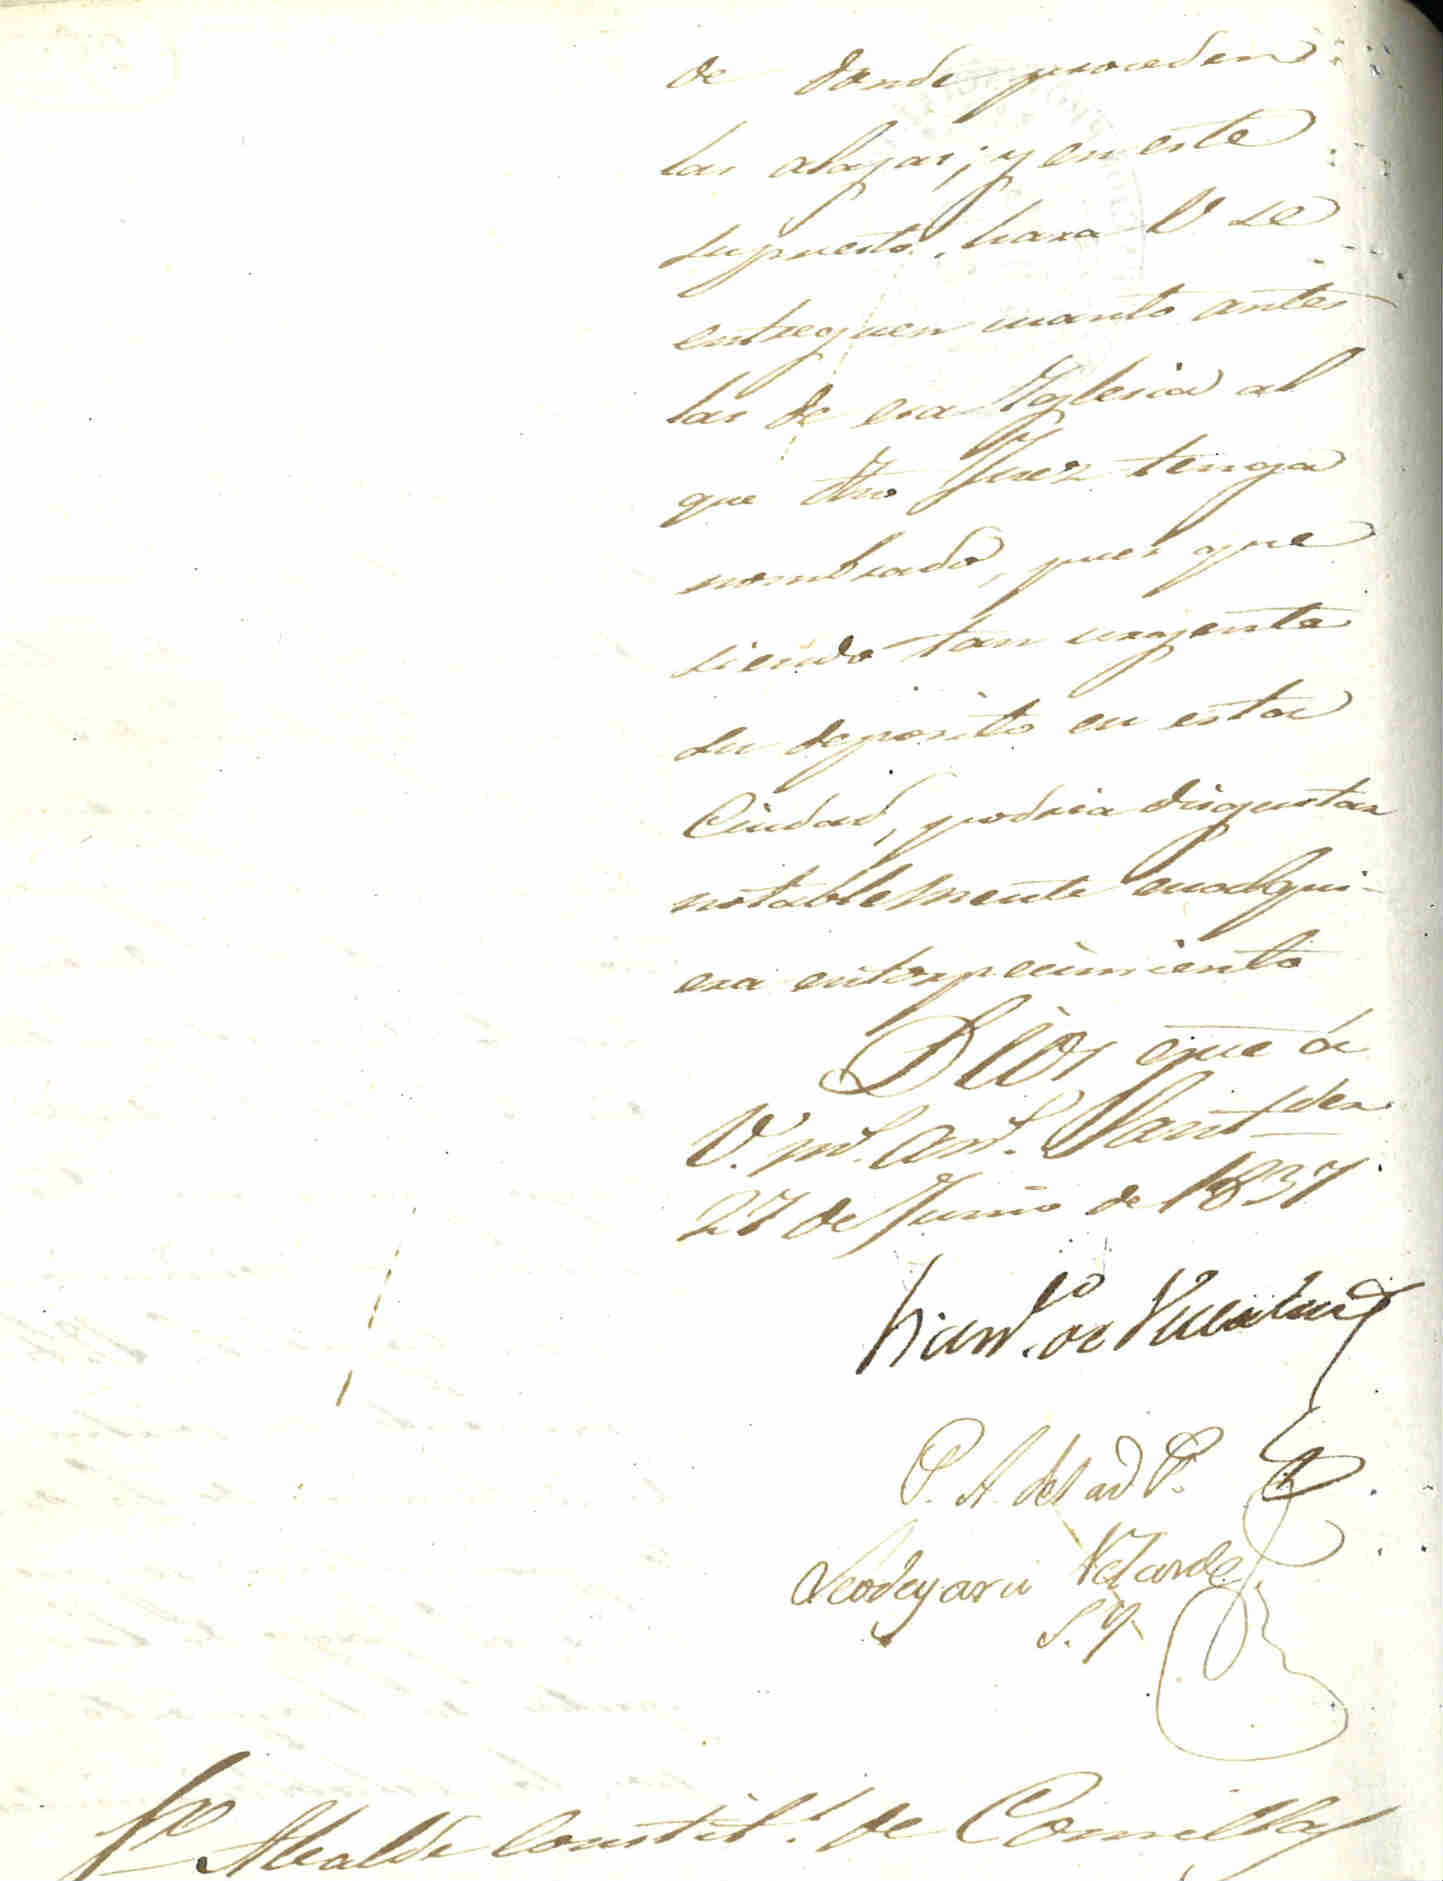 de donde proceden
las alajas; y en este
supuesto, hara V. se
entreguen cuanto antes
las de esa Yglesia al
que dho Juez tenga
nombrado, pues que
siendo tan urjente
su deposito en esta
Ciudad, podria disgustar
notablemente cualqui-
era entorpecimiento
Dios gue á
V. ms. as. Santder
27 de Junio de 1837
P. A. del ad P.
Leodegario Velarde
S. Y.
Sr Alcalde Constitl. de Comillas